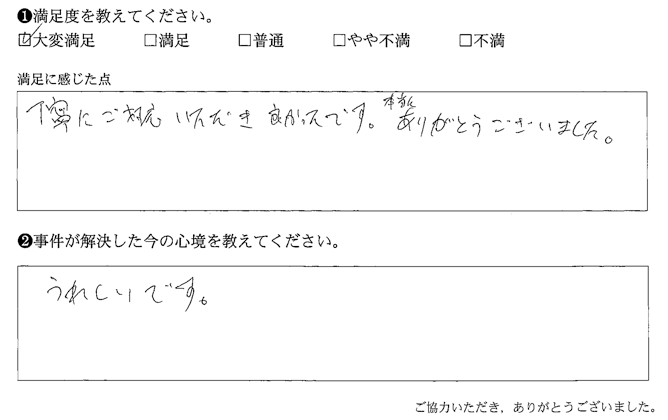 ❶満足度を教えてください。
☑大変満足 □満足 □普通 □やや不満 □不満
満足に感じた点
丁寧にご対応いただき良かったです。本当にありがとうございました。
❷事件が解決した今の心境を教えてください。
うれしいです。
ご協力いただき、ありがとうございました。